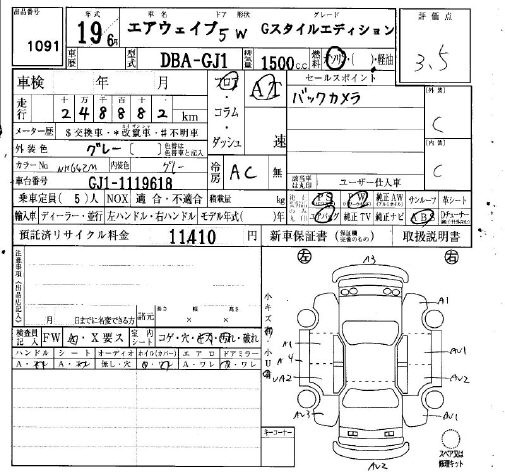 出品番号 年式 車名 ドア 形状 グレード 評価点
1091 19 6月 エアウェイブ 5 W Gスタイルエディション 3.5
車歴 型式 DBA-GJ1 排気量 1500 c.c. 燃料 ガソリン・( )・軽油
車検 年 月 フロア・コラム・ダッシュ AT 速 セールスポイント
バックカメラ
外装 C
内装 C
走行 十 万 千 百 十
2 4 8 8 8 2 km
メーター歴 $交換車・*改竄車・#不明車
外装色 グレー( )
カラーNo NH642M 内装色 グレー
冷房 AC 無
車台番号 GJ1-1119618
ユーザー仕入車
乗車定員 (5)人 NOX 適合・不適合 積載量 kg PS PW 純正AW サンルーフ 革シート
輸入車 ディーラー・並行 左ハンドル・右ハンドル モデル年式( )年 エアバッグ 純正TV 純正ナビ ABS
預託済リサイクル料金 11410 円 新車保証書 取扱説明書
注意事項(出品店記入)
月 日までに名変できる方 諸元 長さ 幅 高さ
検査員記入 FW X要ス 室内シート コゲ・穴・スレ・汚れ・破れ
ハンドル シート オーディオ ホイル(カバー) エアロ ドアミラー
無し・穴 A・ワレ
キーコーナー
小キズ 小U
左 右
A3
A1
A1
AV1
A4
UA2
AV2
AV3
AV1
AV2
スペア又は修理キット